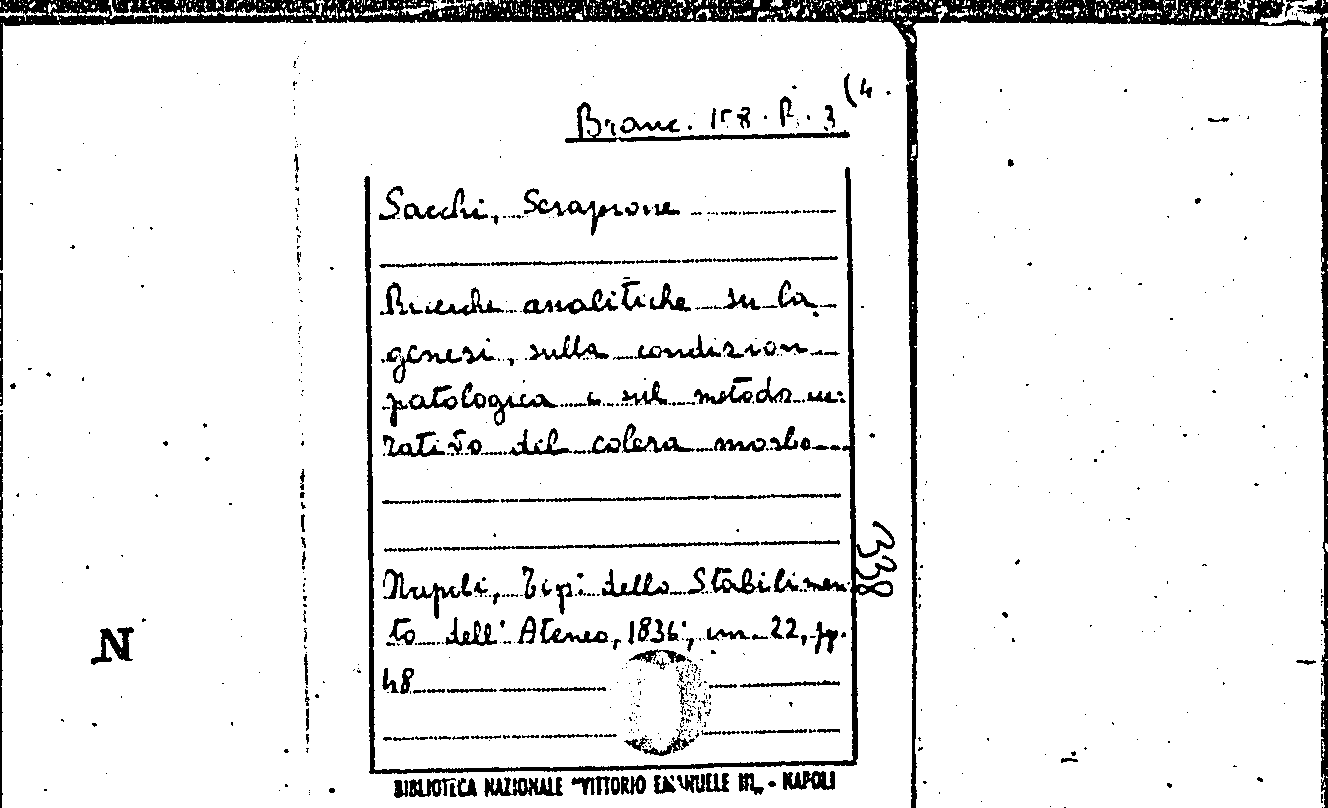 Branc. 158. P. 3 (4.
Sacchi, Serapione
Ricerche analitiche su la
genesi, sulla condizion
patologica e sul metodo cu:
rativo del colera morbo
Napoli, Tip: dello Stabilimen
to dell' Ateneo, 1836, cm. 22, pp.
48
338
N
BIBLIOTECA NAZIONALE "VITTORIO EMANUELE III" - NAPOLI